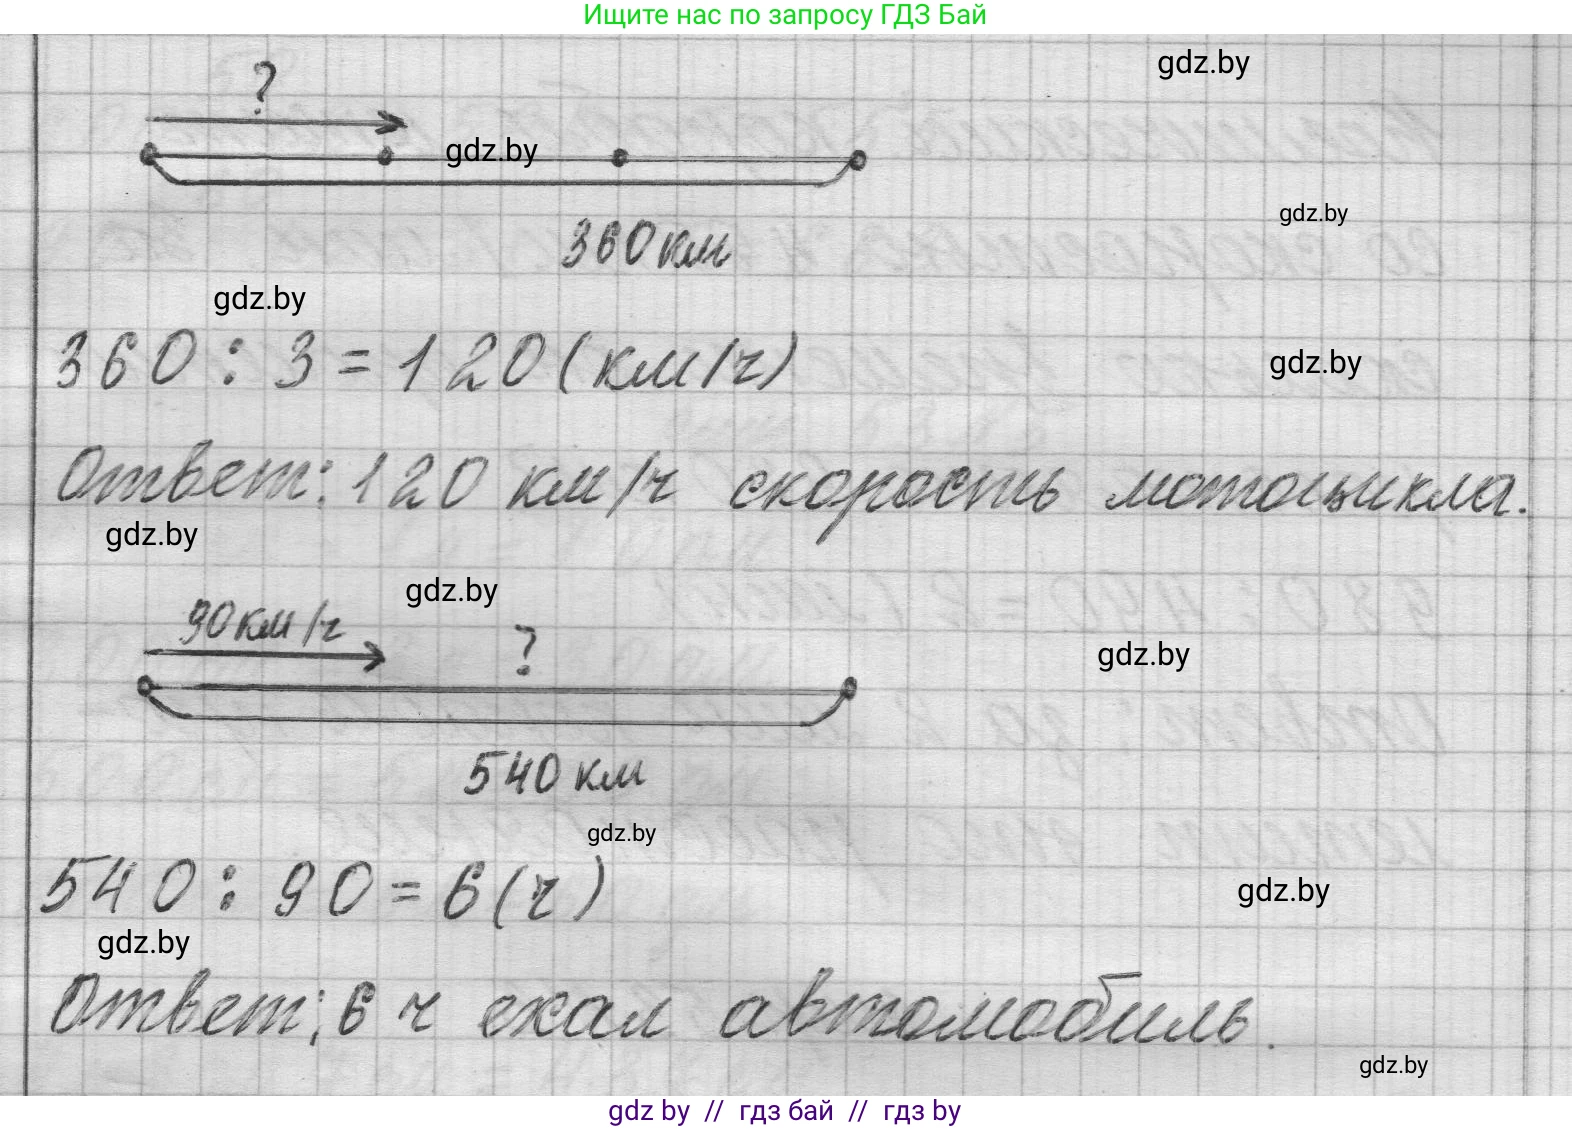 Ищите нас по запросу ГДЗ Бай
gdz.by
?
gdz.by
gdz.by
360 км
gdz.by
360 : 3 = 120 (км/ч)
gdz.by
Ответ: 120 км/ч скорость мотоцикла.
gdz.by
gdz.by
90 км/ч
?
gdz.by
540 км
gdz.by
540 : 90 = 6 (ч)
gdz.by
gdz.by
Ответ: 6 ч ехал автомобиль.
gdz.by
gdz by // гдз бай // гдз by